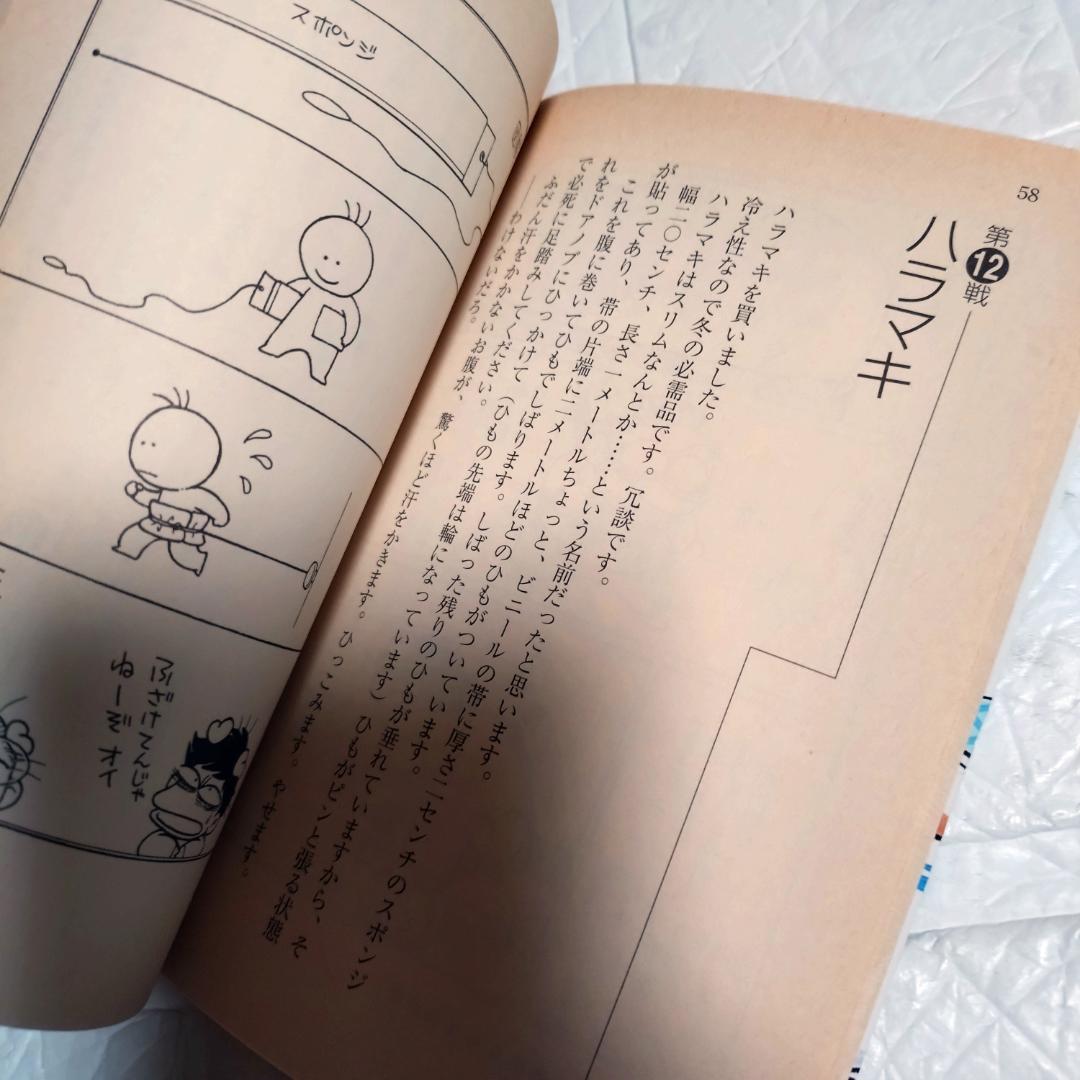 58
第12戦
ハラマキ
ハラマキを買いました。
冷え性なので冬の必需品です。冗談です。
ハラマキはスリムなんとか……という名前だったと思います。
幅二〇センチ、長さ一メートルちょっと、ビニールの帯に厚さ二センチのスポンジ
が貼ってあり、帯の片端に二メートルほどのひもがついています。
これを腹に巻いてひもでしばります。しばった残りのひもが垂れていますから、そ
れをドアノブにひっかけて（ひもの先端は輪になっています）ひもがピンと張る状態
で必死に足踏みしてください。
ふだん汗をかかないお腹が、驚くほど汗をかきます。ひっこみます。やせます。
――わけないだろ。
スポンジ
ふざけてんじゃ
ねーぞ オイ